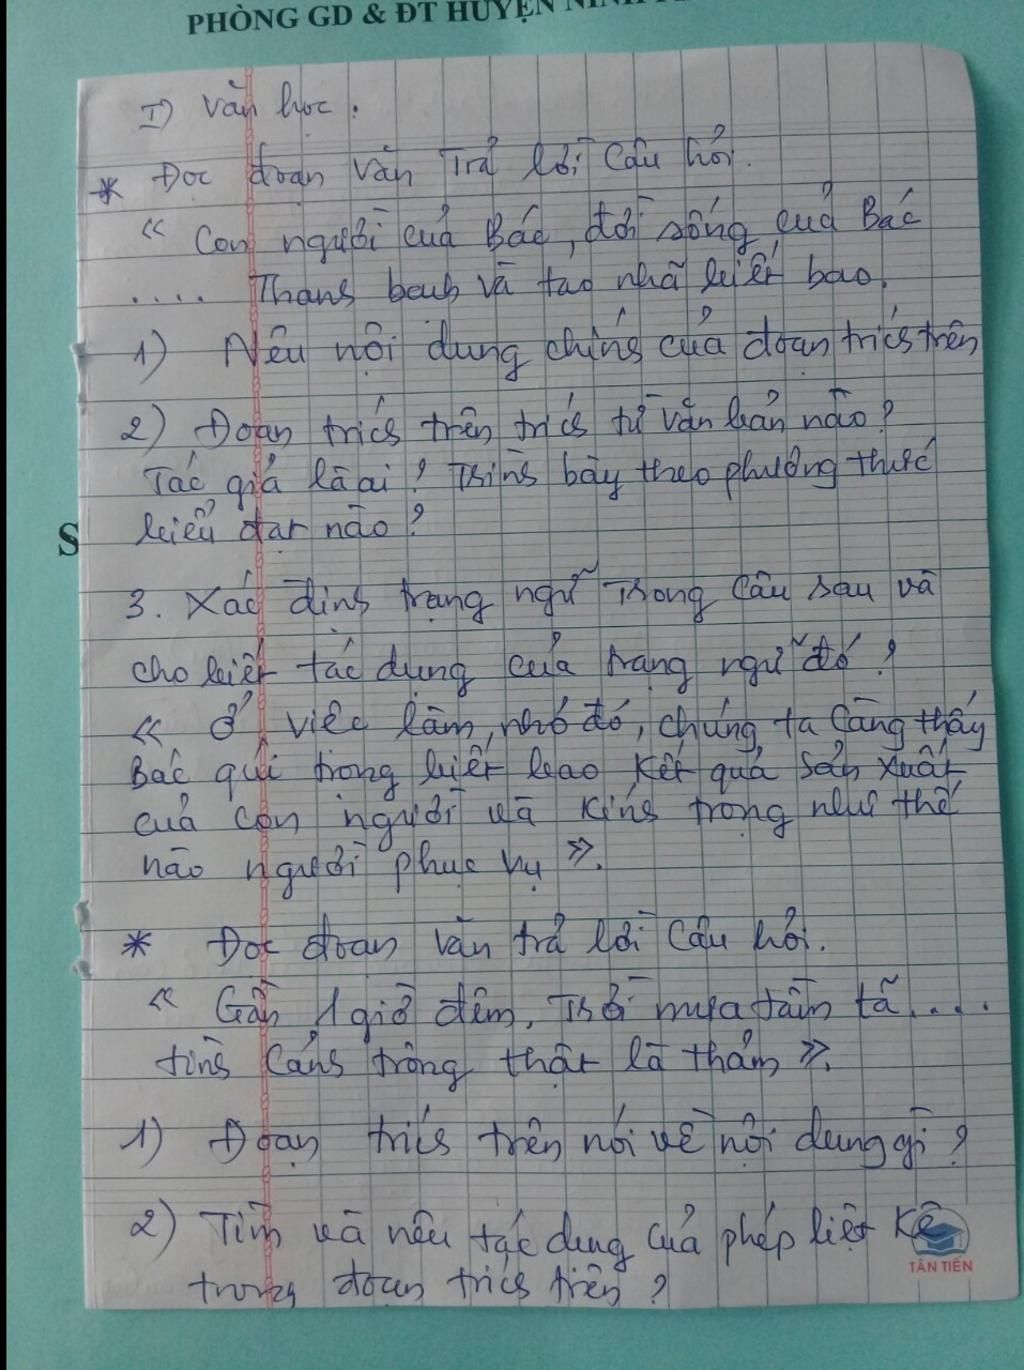 PHÒNG GD & ĐT HUYỆN
I) Văn học.
* Đọc đoạn văn Trả lời câu hỏi.
« Con người của Bác, đời sống của Bác
.... Thanh bạch và tao nhã biết bao.
1) Nêu nội dung chính của đoạn trích trên
2) Đoạn trích trên trích từ văn bản nào?
Tác giả là ai? Trình bày theo phương thức
S
biểu đạt nào?
3. Xác định trạng ngữ Trong câu sau và
cho biết tác dụng của trạng ngữ đó?
« Ở việc làm nhỏ đó, chúng ta càng thấy
Bác quí trọng biết bao kết quả sản xuất
của con người và kính trọng như thế
nào người phục vụ ».
* Đọc đoạn văn trả lời câu hỏi.
« Gần 1 giờ đêm. Trời mưa tầm tã....
tình cảnh trông thật là thảm ».
1) Đoạn trích trên nói về nội dung gì?
2) Tìm và nêu tác dụng của phép liệt kê
TÂN TIẾN
trong đoạn trích trên?